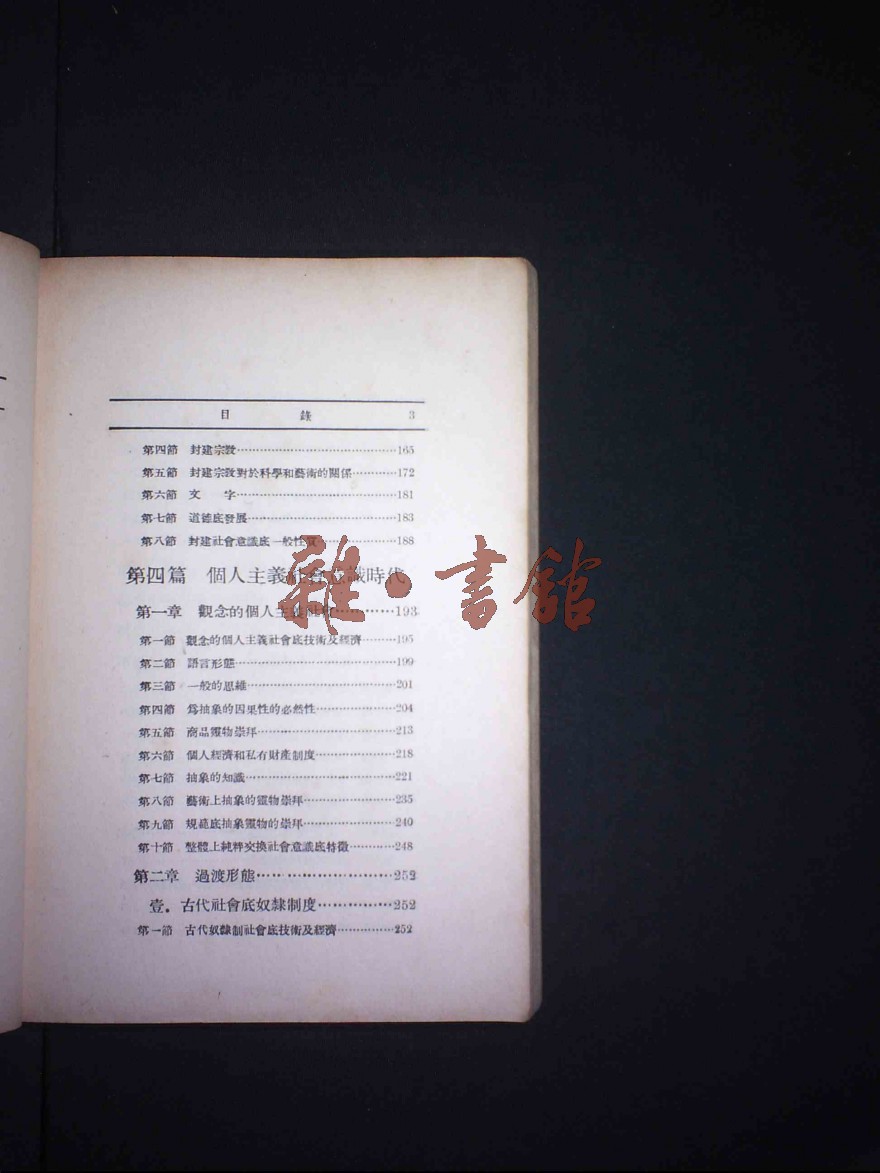 目 錄 3
第四節 封建宗敎⋯⋯⋯⋯165
第五節 封建宗敎對於科學和藝術的關係⋯⋯⋯⋯172
第六節 文 字⋯⋯⋯⋯181
第七節 道德底發展⋯⋯⋯⋯183
第八節 封建社會意識底一般性質⋯⋯⋯⋯188
第四篇 個人主義社會意識時代
第一章 觀念的個人主義社會⋯⋯⋯⋯193
第一節 觀念的個人主義社會底技術及經濟⋯⋯⋯⋯195
第二節 語言形態⋯⋯⋯⋯199
第三節 一般的思維⋯⋯⋯⋯201
第四節 爲抽象的因果性的必然性⋯⋯⋯⋯204
第五節 商品靈物崇拜⋯⋯⋯⋯213
第六節 個人經濟和私有財產制度⋯⋯⋯⋯218
第七節 抽象的知識⋯⋯⋯⋯221
第八節 藝術上抽象的靈物崇拜⋯⋯⋯⋯235
第九節 規範底抽象靈物的崇拜⋯⋯⋯⋯240
第十節 整體上純粹交換社會意識底特徵⋯⋯⋯⋯248
第二章 過渡形態⋯⋯⋯⋯252
壹．古代社會底奴隸制度⋯⋯⋯⋯252
第一節 古代奴隸制社會底技術及經濟⋯⋯⋯⋯252
雜·書館